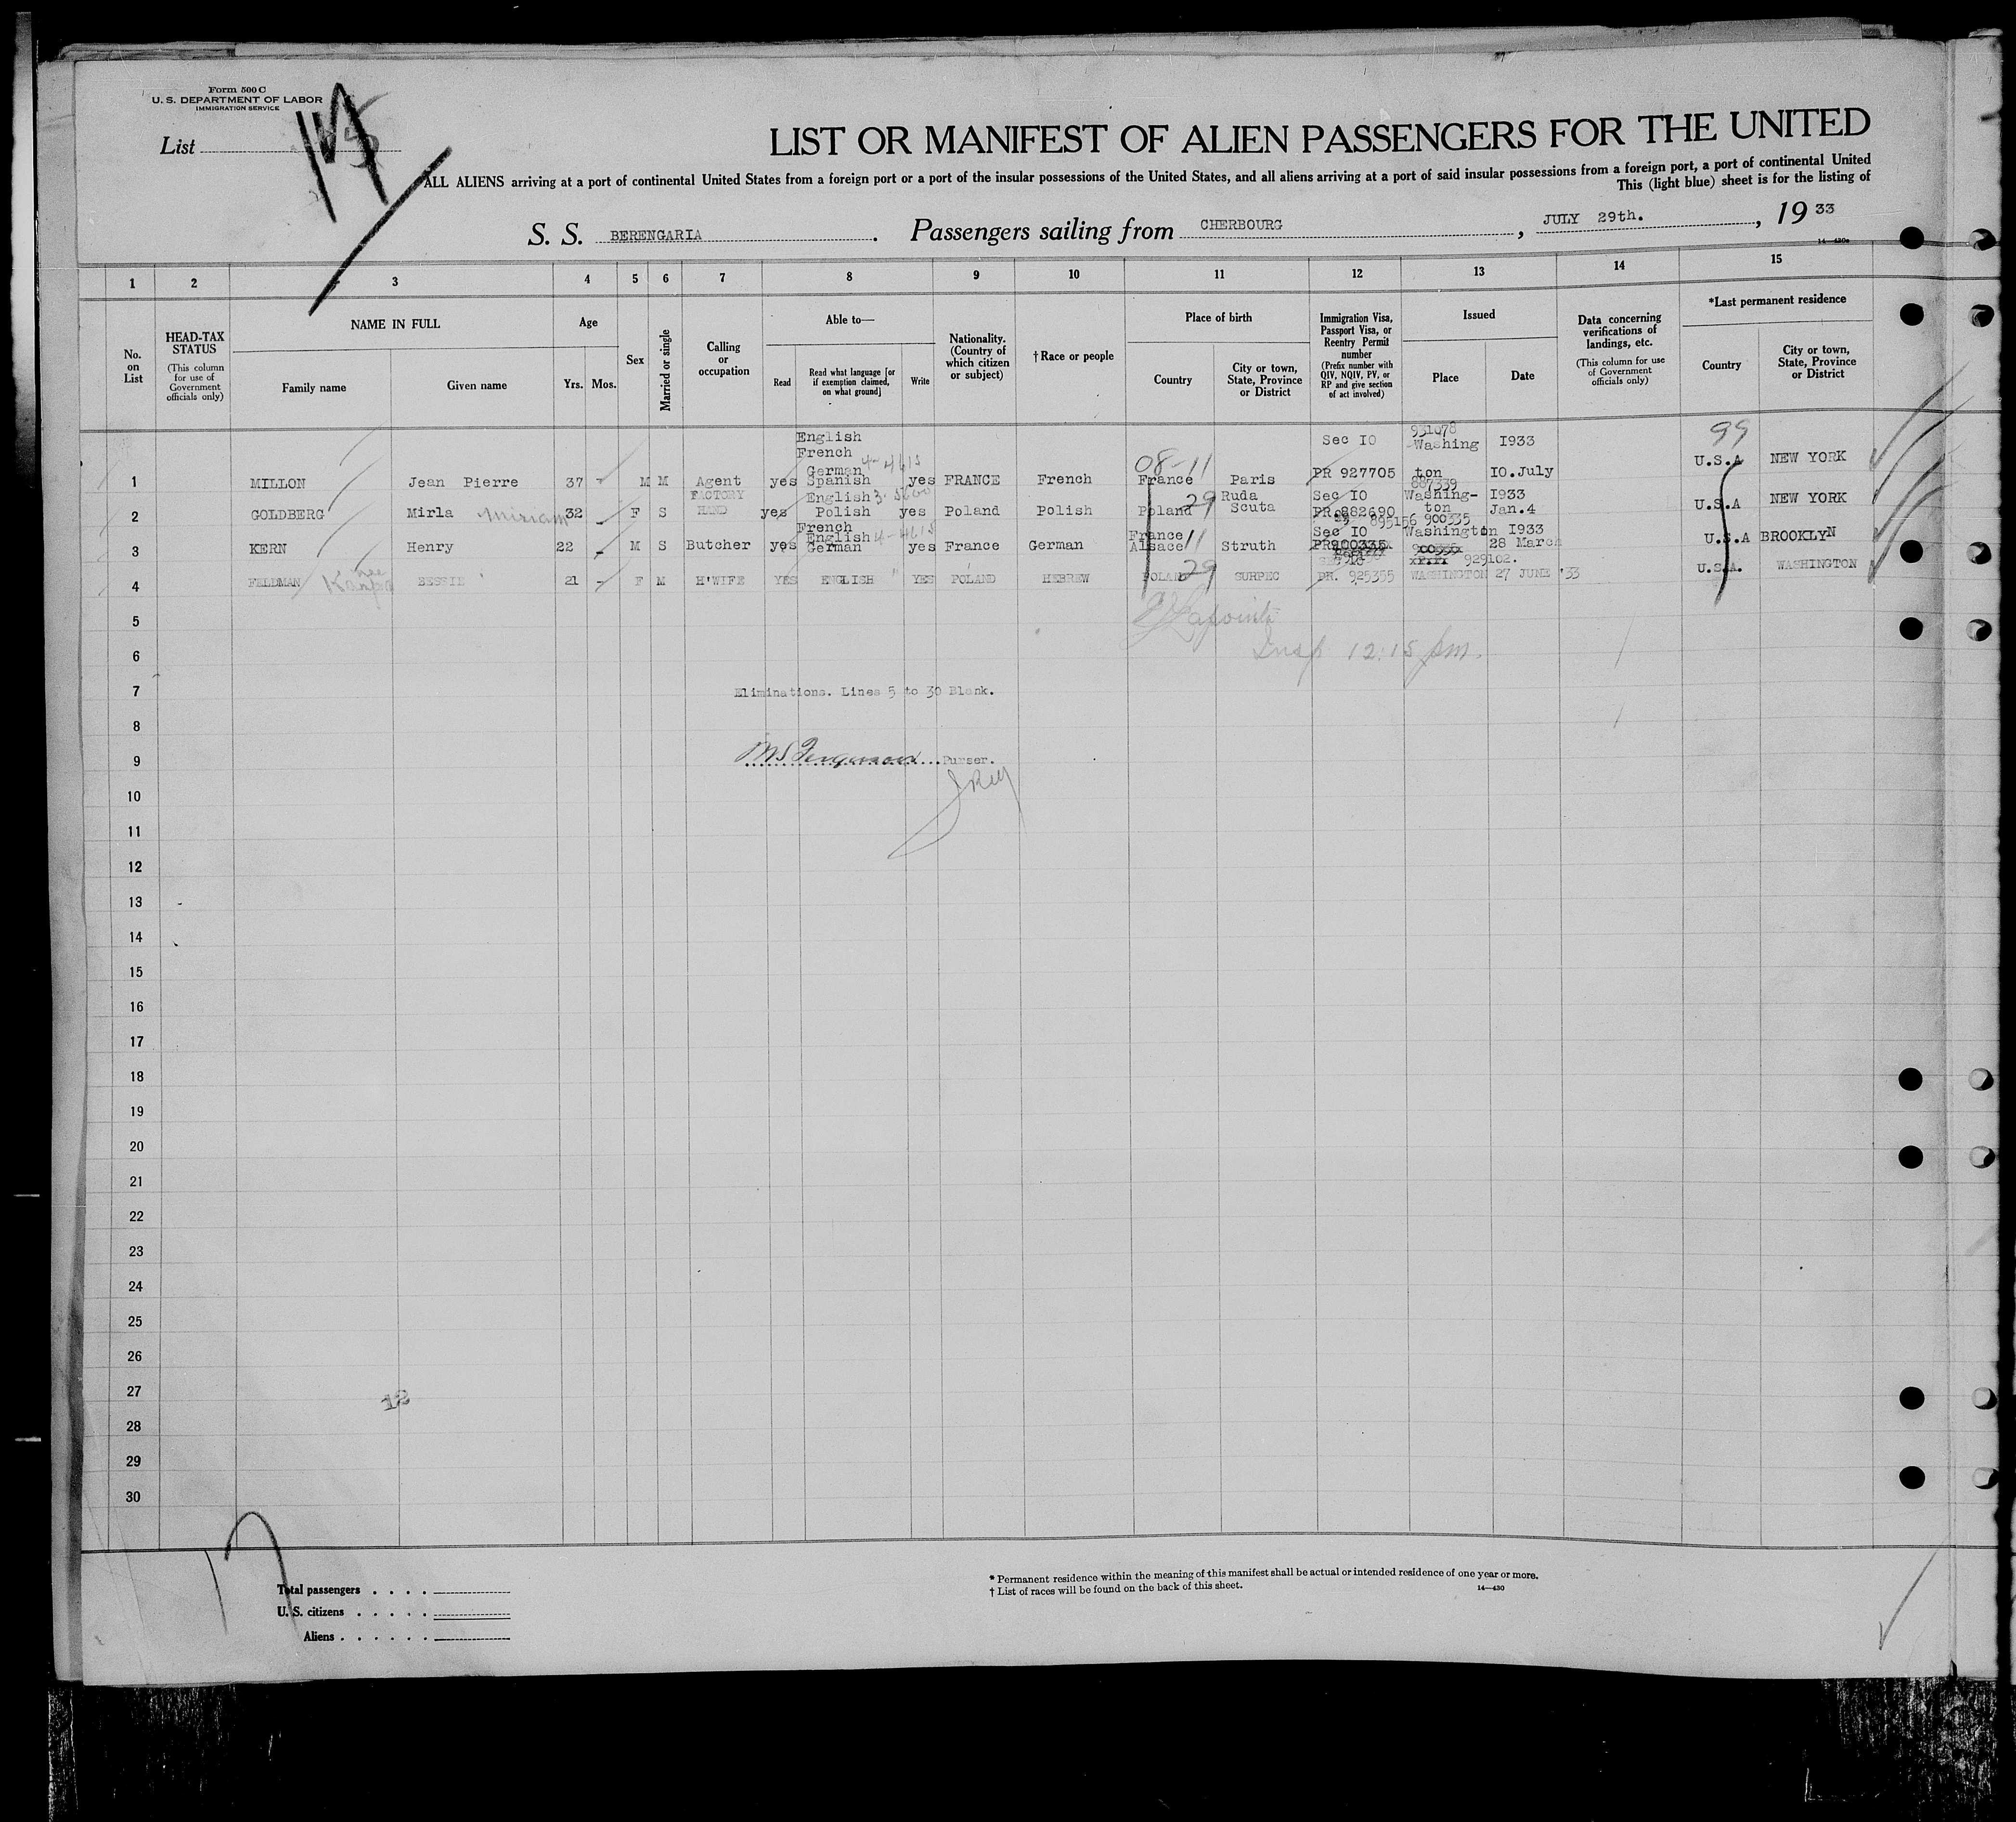 Form 500 C
U. S. DEPARTMENT OF LABOR
IMMIGRATION SERVICE
List
LIST OR MANIFEST OF ALIEN PASSENGERS FOR THE UNITED
ALL ALIENS arriving at a port of continental United States from a foreign port or a port of the insular possessions of the United States, and all aliens arriving at a port of said insular possessions from a foreign port, a port of continental United
This (light blue) sheet is for the listing of
S. S. BERENGARIA . Passengers sailing from CHERBOURG , JULY 29th. , 19 33
14—430a
1 2 3 4 5 6 7 8 9 10 11 12 13 14 15
No. on List
HEAD-TAX STATUS
(This column for use of Government officials only)
NAME IN FULL
Family name
Given name
Age
Yrs. Mos.
Sex
Married or single
Calling or occupation
Able to—
Read
Read what language [or if exemption claimed, on what ground]
Write
Nationality. (Country of which citizen or subject)
†Race or people
Place of birth
Country
City or town, State, Province or District
Immigration Visa, Passport Visa, or Reentry Permit number
(Prefix number with QIV, NQIV, PV, or RP and give section of act involved)
Issued
Place
Date
Data concerning verifications of landings, etc.
(This column for use of Government officials only)
*Last permanent residence
Country
City or town, State, Province or District
English Sec 10 931078 I933 99
French 4-4615 Washing
German 08-11
1 MILLON Jean Pierre 37 - M M Agent yes Spanish yes FRANCE French France Paris PR 927705 ton IO.July U.S.A NEW YORK
FACTORY English 3-5600 29 Ruda Sec IO 887339 Washing- I933
2 GOLDBERG Mirla Miriam 32 - F S HAND yes Polish yes Poland Polish Poland Scuta PR 882690 ton Jan.4 U.S.A NEW YORK
895156 900335
French English 4-4615 France 11 Sec IO Washington I933
3 KERN Henry 22 - M S Butcher yes German yes France German Alsace Struth PR900335 28 March U.S.A BROOKLYN
929102.
4 FELDMAN nee BESSIE 21 - F M H'WIFE YES ENGLISH " YES POLAND HEBREW POLAND 29 SURPEC PR. 925355 WASHINGTON 27 JUNE '33 U.S.A. WASHINGTON
5
6 Insp 12:15 pm.
7 Eliminations. Lines 5 to 30 Blank.
8
9 Ferguson Purser.
10
11
12
13
14
15
16
17
18
19
20
21
22
23
24
25
26
27
12
28
29
30
Total passengers . . . .
U. S. citizens . . . . .
Aliens . . . . . .
* Permanent residence within the meaning of this manifest shall be actual or intended residence of one year or more.
† List of races will be found on the back of this sheet.
14—430